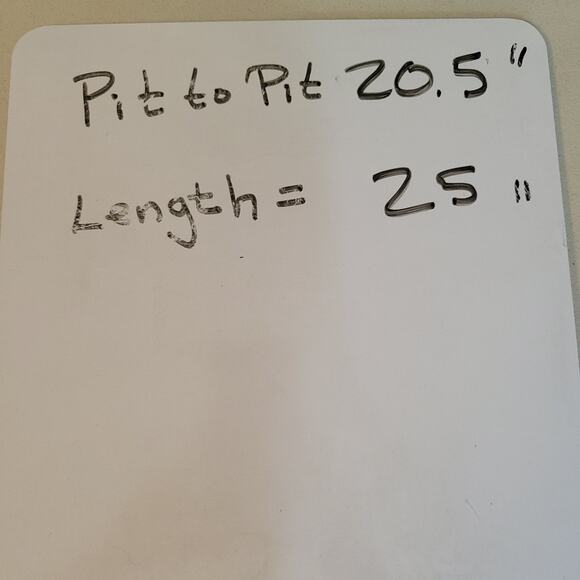 Pit to Pit 20.5"
Length = 25"